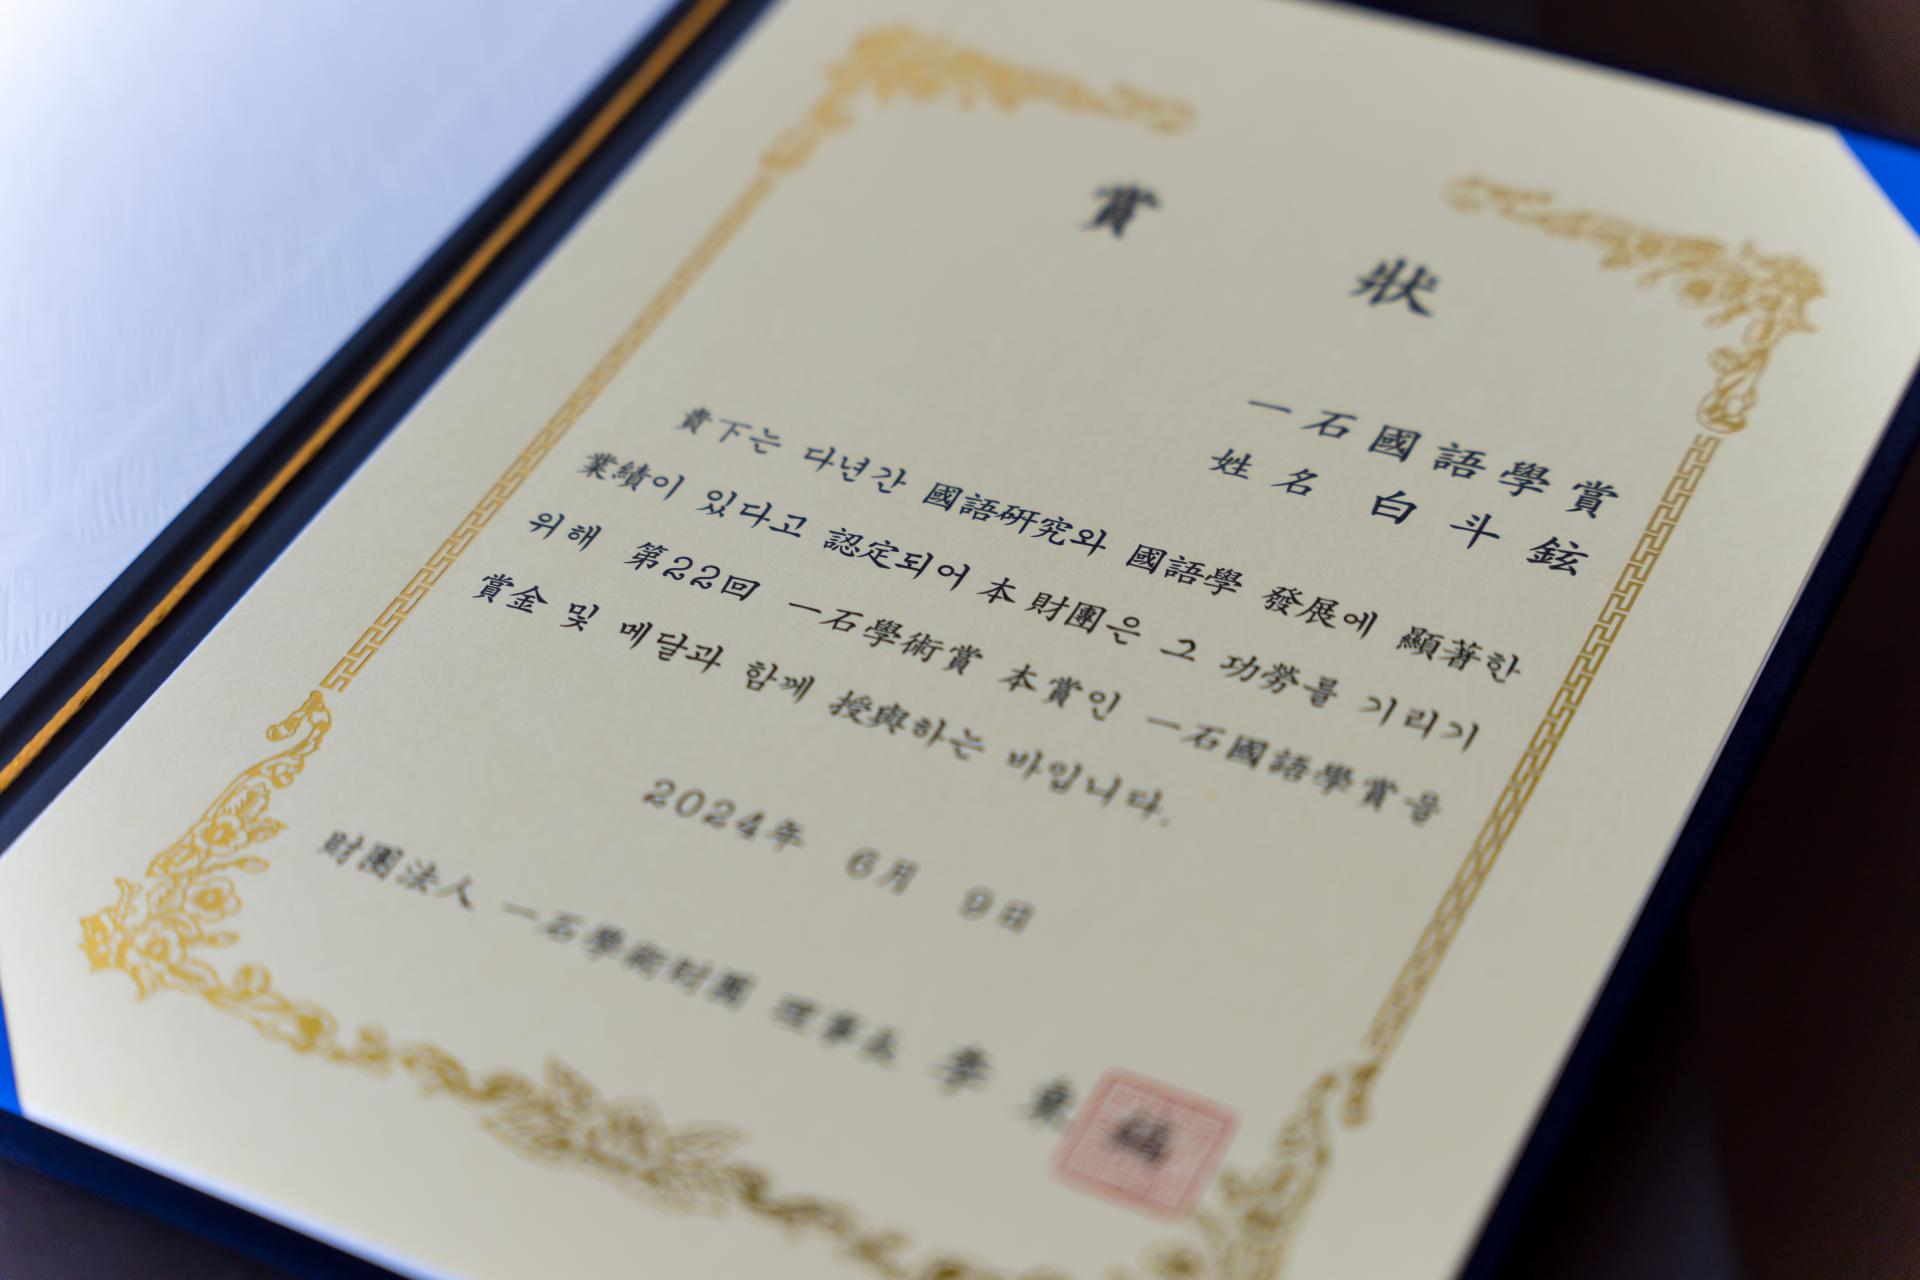 賞 狀
一石國語學賞
姓名 白斗鉉
貴下는 다년간 國語硏究와 國語學 發展에 顯著한
業績이 있다고 認定되어 本 財團은 그 功勞를 기리기
위해 第22回 一石學術賞 本賞인 一石國語學賞을
賞金 및 메달과 함께 授與하는 바입니다.
2024年 6月 9日
財團法人 一石學術財團 理事長 李